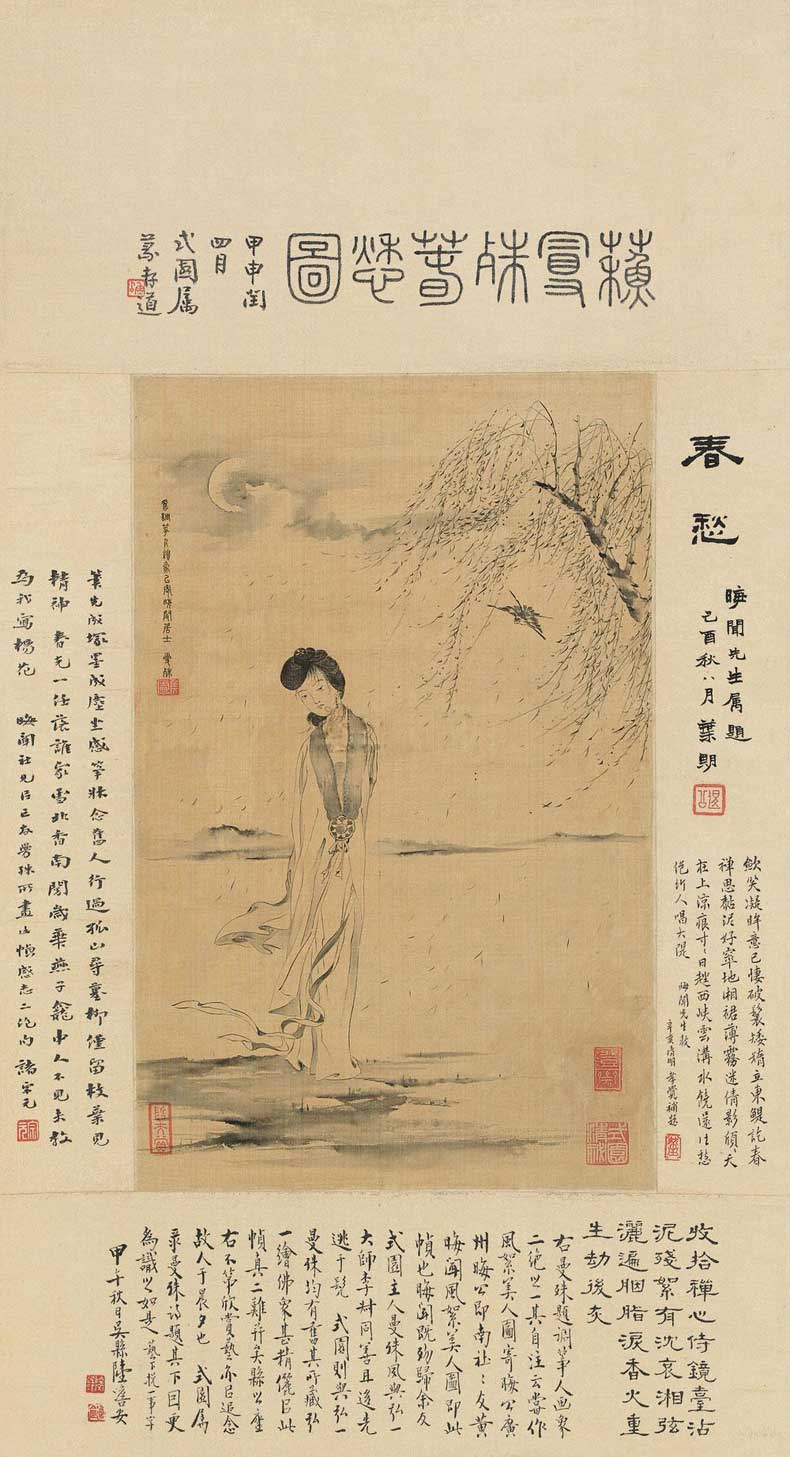 蘇曼殊春愁圖
甲申閏
四月
式園屬
春愁
晦聞先生屬題
己酉秋八月葉
歛笑凝眸意已悽破鬟矮墮立東鯷訖春
禪思黏泥好窣地湘裙薄霧迷倩影傾天
在上涼痕寸寸日趖西峽雲溝水饒還往愁
絕行人唱大隄
晦聞先生教
辛亥清明孝覺補題
晦聞居士 曼殊
筆先成塚墨成塵生感箏牀念舊人行過孤山尋墓柳僅留枝葉見
精神 春光一任落誰家雪北香南閱歲華燕子龕中人不見未教
為我寫楊花 晦聞社兄 曼殊所畫 愴感志二絕句 諸宗元
收拾禪心侍鏡臺沾
泥殘絮有沈哀湘弦
灑遍胭脂淚香火重
生劫後灰
右曼殊題調箏人画象
二絕之一其自注云嘗作
風絮美人圖寄晦公廣
州晦公即南社社友黃
晦聞風絮美人圖即此
幀也晦聞既歿歸余友
式園主人曼殊風與弘一
大師李叔同善且後先
逃于髡 式園則與弘一
曼殊均有舊其所藏弘
一繪佛象甚精儷以此
幀真二難并矣縣之座
右不第欣賞藝亦以追念
故人于晨夕也 式園屬
录曼殊詩題其下因更
為識之如是 藝下挩一事字
甲午秋日吳縣陸澹安